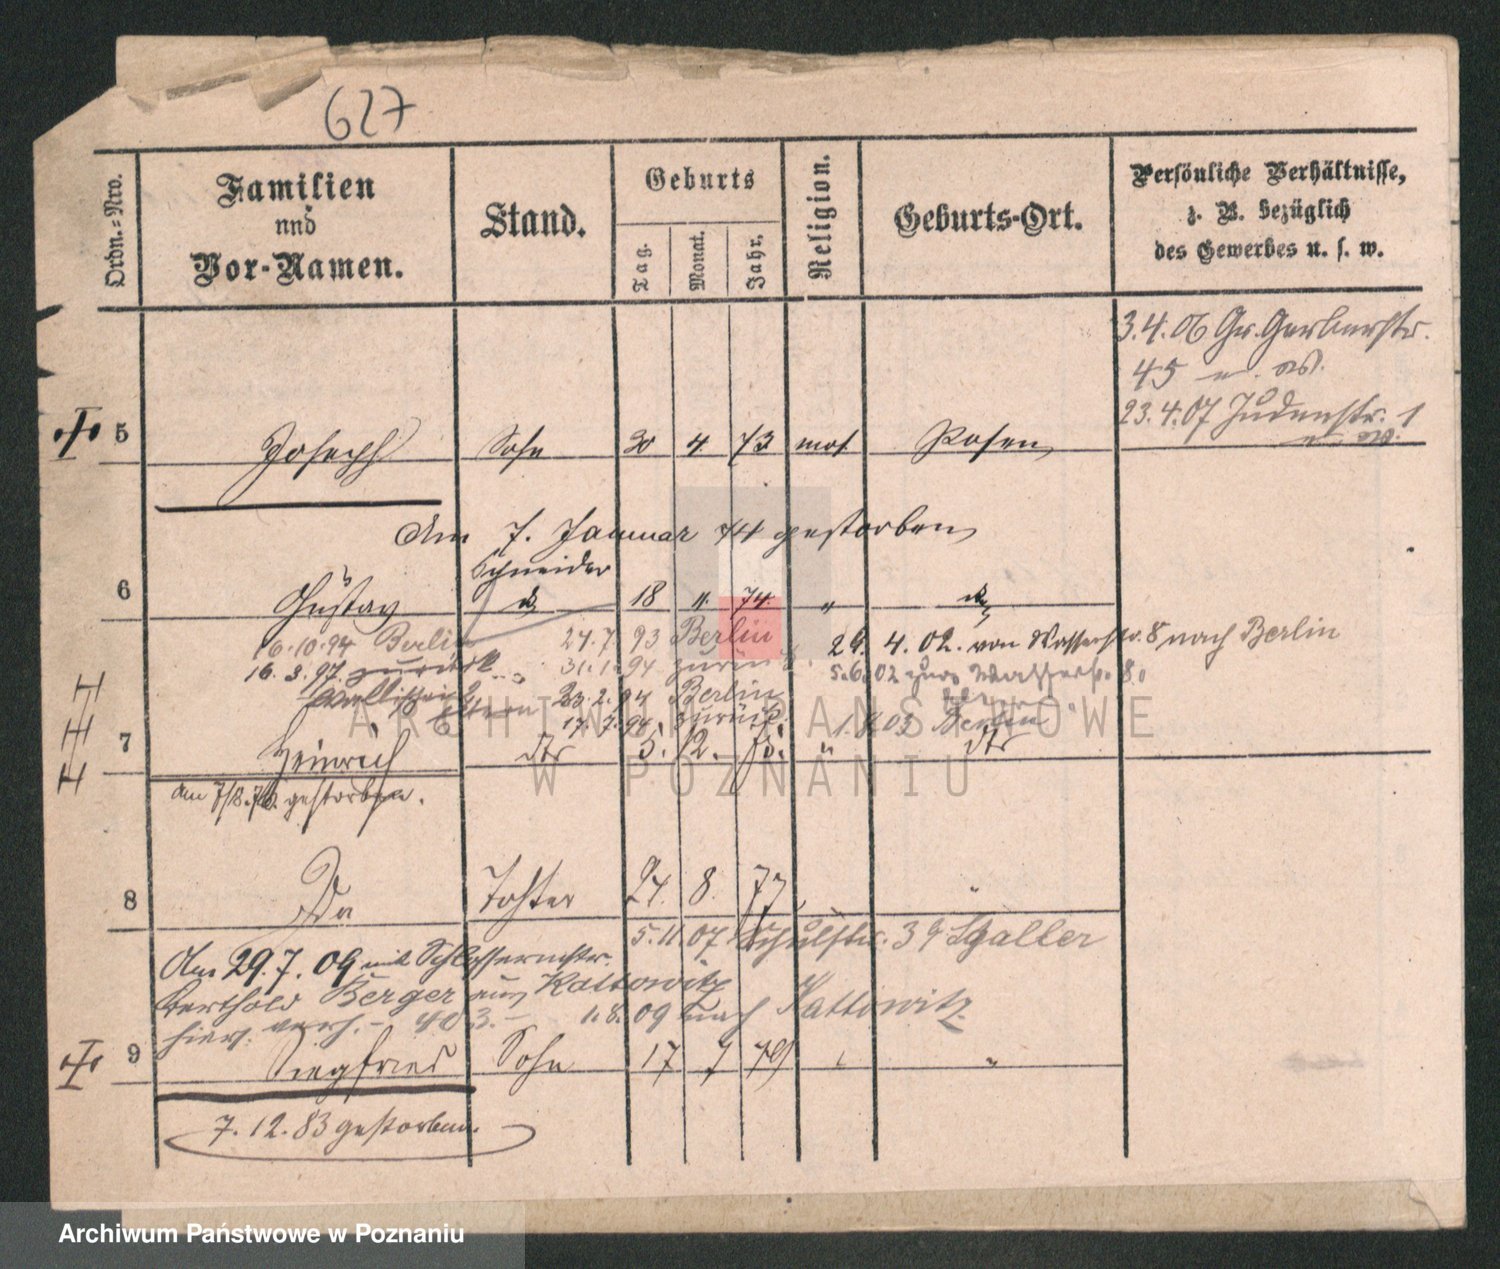 627
Ordn.-Nro.
Familien
und
Vor-Namen.
Stand.
Geburts
Tag.
Monat.
Jahr.
Religion.
Geburts-Ort.
Persönliche Verhältnisse,
z. B. bezüglich
des Gewerbes u. s. w.
3.4.06 Gr. Gerberstr.
45
23.4.07 Judenstr. 1
5 Joseph Sohn 30 4 73 mos Posen
Am 7. Januar 74 gestorben
Schneider
6 Gustav 18 " 74. "
16.10.94 Berlin 24.7.93 Berlin 24. 4. 02. von Wasserstr. 8 nach Berlin
16.3.97 zurück 31.1.94 zurück 5.6.02 Wasserstr. 8.
Eltern 23.2.94 Berlin
17.7.94. zurück 03 Berlin
7 Heinrich dto 5. 12. " dto
am gestorben.
8 Ida Tochter 24. 8. 77 "
5.11.07 Schulstr. 39 Galler
Am 29.7.09 mit Schlossermstr.
Berthold Berger aus Kattowitz
hier verh. – 403. – 1.8.09 nach Kattowitz
9 Siegfried Sohn 17 7 79 "
7.12.83 gestorben.
ARCHIWUM PAŃSTWOWE
W POZNANIU
Archiwum Państwowe w Poznaniu